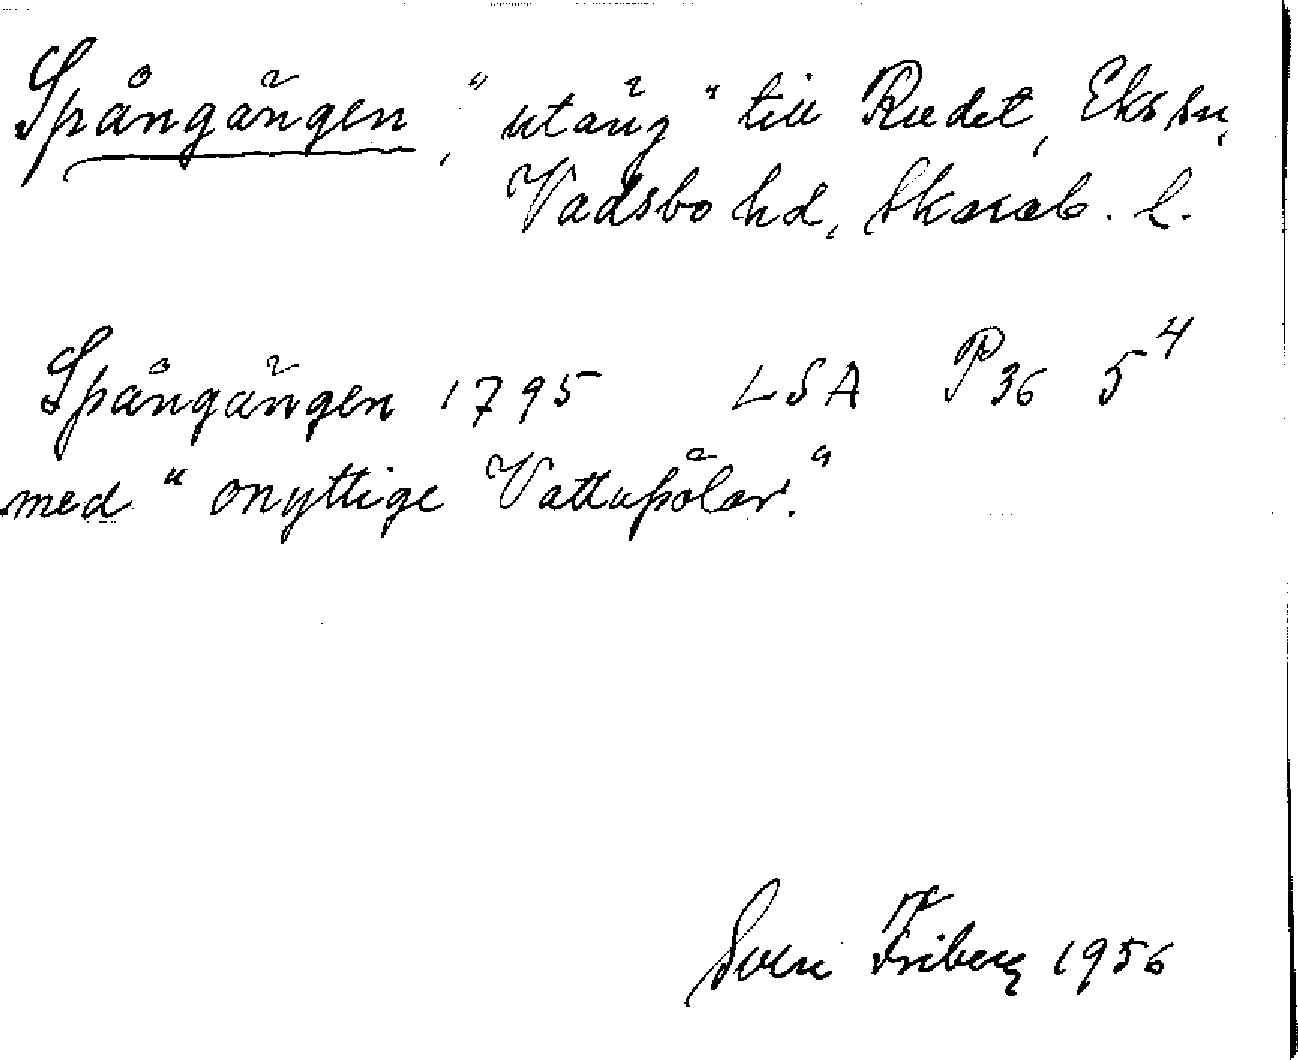 Spångängen, "utäng" till Rudet, Eks sn,
Vadsbo hd, Skarab. l.
Spångängen 1795 LSA P36 5⁴
med "onyttige Vattupölar."
Sven Friberg 1956